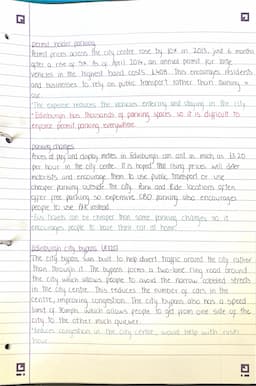 permit holder parking
Permit prices across the city centre rose by 10% in 2015, just 6 months
after a rise of 5%. As of April 2014, an annual permit for large
vehicles in the highest band costs £408. This encourages residents
and businesses to rely on public transport rather than owning a
car.
*The expense reduces the vehicles entering and staying in the city
*Edinburgh has thousands of parking spaces so it is difficult to
enforce permit parking everywhere.
parking charges
Prices at pay and display meters in Edinburgh can cost as much as £3.20
per hour in the city centre. It is hoped that rising prices will deter
motorists and encourage them to use public transport or use
cheaper parking outside the city. Park and Ride locations often
offer free parking so expensive CBD parking also encourages
people to use P&R instead.
*Bus travel can be cheaper than some parking charges so it
encourages people to leave their car at home!
Edinburgh city bypass (A720)
The city bypass was built to help divert traffic around the city rather
than through it. The bypass forms a two-lane ring road around
the city which allows people to avoid the narrow streets
in the city centre. This reduces the number of cars in the
centre, improving congestion. The city bypass also has a speed
limit of 70mph, which allows people to get from one side of the
city to the other much quicker.
*reduces congestion in the city centre, would help with rush
hour